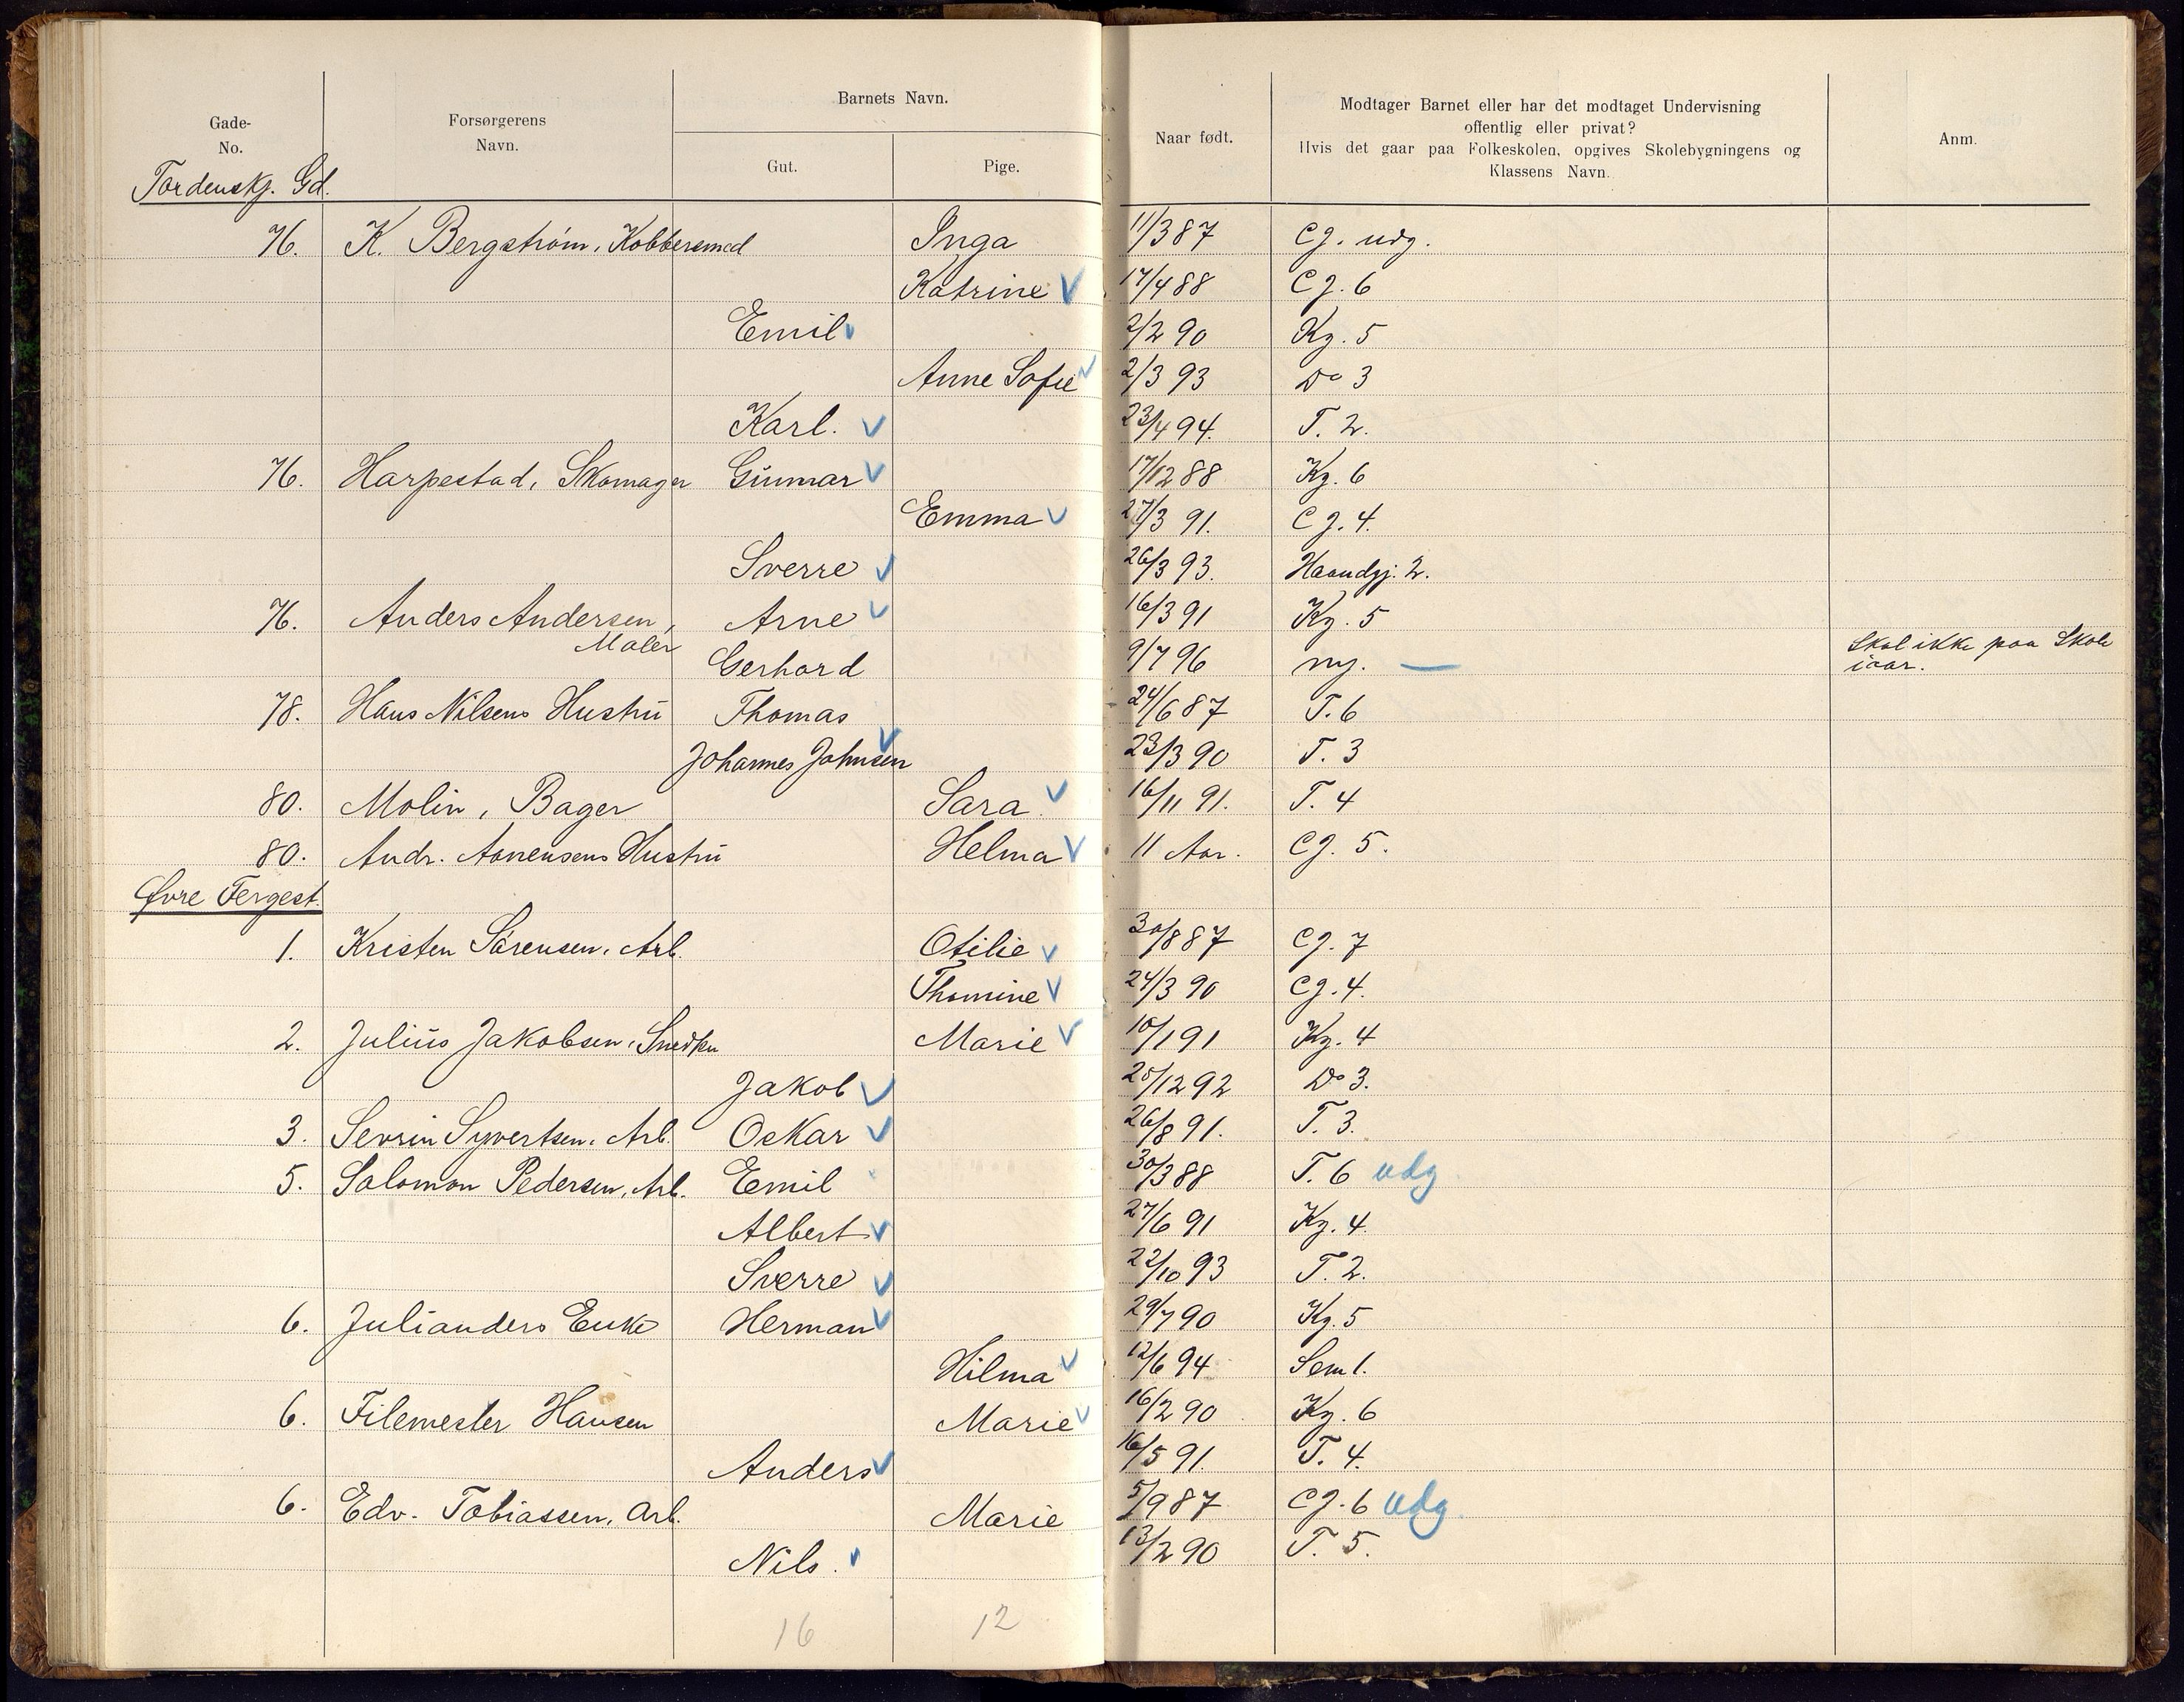 Gade-
No.
Forsørgerens
Navn.
Barnets Navn.
Gut.
Pige.
Naar født.
Modtager Barnet eller har det modtaget Undervisning
offentlig eller privat?
Hvis det gaar paa Folkeskolen, opgives Skolebygningens og
Klassens Navn.
Anm.
Tordenskj. Gd.
76. K. Bergstrøm, Kobbersmed Inga 11/3 87 Cg. udg.
Katrine V 17/4 88 Cg. 6
Emil V 2/2 90 Kg. 5
Anne Sofie V 2/3 93 Do 3
Karl. V 23/4 94. T. 2.
76. Harpestad, Skomager Gunnar V 17/12 88 Kg. 6
Emma V 27/3 91. Cg. 4.
Sverre V 26/3 93. Haandgj. 2.
76. Anders Andersen, Arne V 16/3 91 Kg. 5
Maler Gerhard 9/7 96 ny. — Skal ikke paa Skole
iaar.
78. Hans Nilsens Hustru Thomas 24/6 87 T. 6
Johannes Johnsen V 23/3 90 T. 3
80. Molin, Bager Sara V 16/11 91. T. 4
80. Andr. Hustru Helma V 11 Aar. Cg. 5.
Øvre Fergest.
1. Kristen Sørensen, Arb. Otilie V 30/8 87 Cg. 7
Thomine V 24/3 90 Cg. 4.
2. Julius Jakobsen, Snedker Marie V 10/1 91 Kg. 4
Jakob V 25/12 92 Do 3.
3. Sevrin Syvertsen, Arb. Oskar V 26/8 91. T. 3.
5. Salomon Pedersen, Arb. Emil 30/3 88 T. 6 udg
Albert V 27/6 91 Kg. 4.
Sverre V 22/10 93 T. 2.
6. Julianders Enke Herman V 29/7 90 Kg. 5
Hilma V 12/6 94 Sem 1.
6. Filemester Hansen Marie V 16/2 90 Kg. 6
Anders V 16/5 91. T. 4.
6. Edv. Tobiassen, Arb. Marie 5/9 87 Cg. 6 udg
Nils. V 13/2 90 T. 5.
16 12